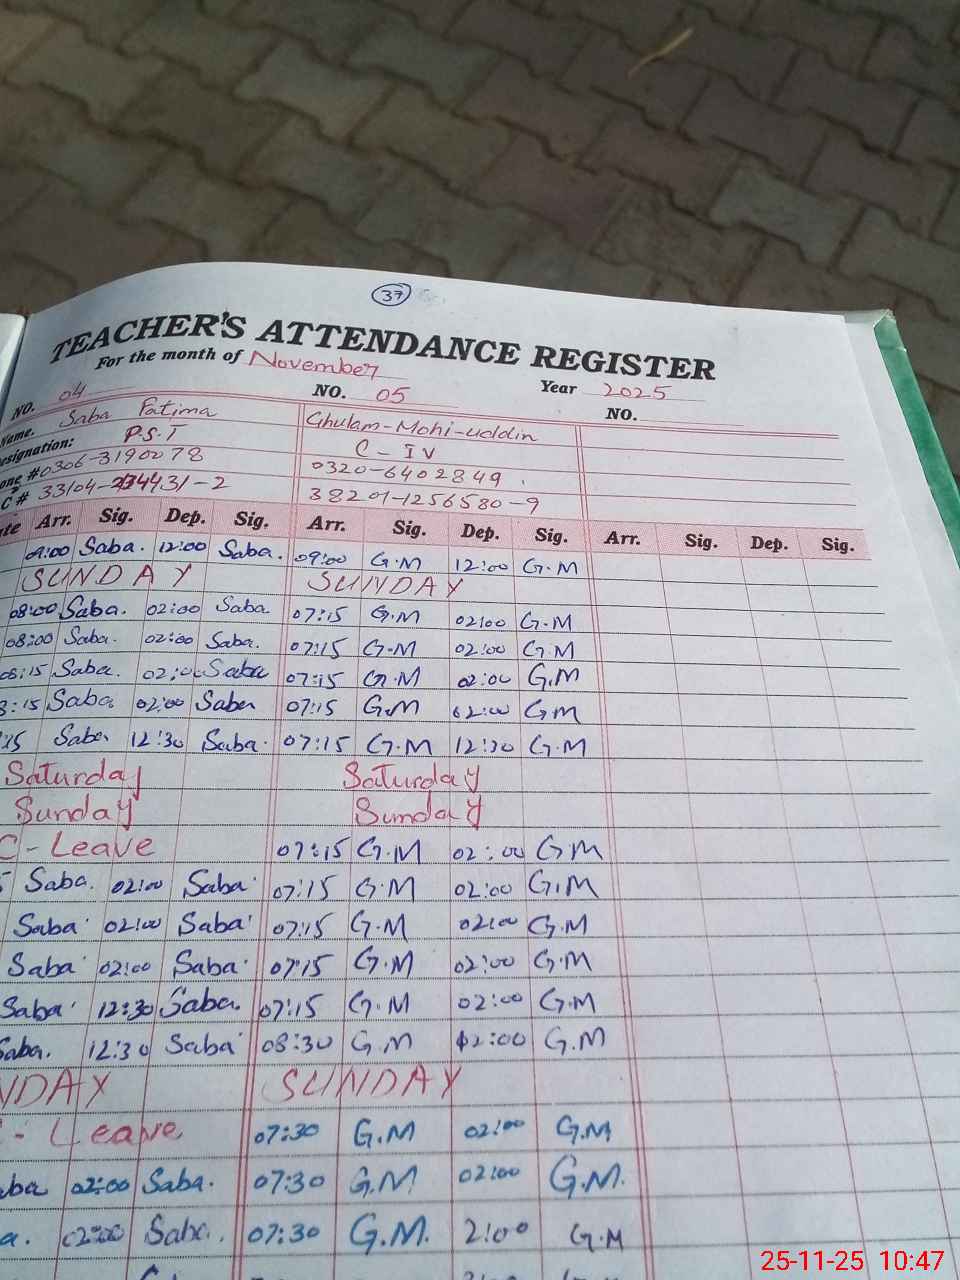 37
TEACHER'S ATTENDANCE REGISTER
For the month of November
Year 2025
NO. 04 NO. 05 NO.
Name. Saba Fatima Ghulam-Mohi-uddin
esignation: P.S.T C-IV
one # 0306-3190078 0320-6402849
C # 33104- 31-2 38201-1256580-9
te Arr. Sig. Dep. Sig. Arr. Sig. Dep. Sig. Arr. Sig. Dep. Sig.
09:00 Saba. 12:00 Saba. 09:00 G.M 12:00 G.M
SUNDAY SUNDAY
08:00 Saba. 02:00 Saba 07:15 G.M 02:00 G.M
08:00 Saba. 02:00 Saba. 07:15 G.M 02:00 G.M
08:15 Saba. 02:00 Saba 07:15 G.M 02:00 G.M
8:15 Saba 02:00 Saba 07:15 G.M 02:00 GM
15 Saba. 12:30 Saba. 07:15 G.M 12:30 G.M
Saturday Saturday
Sunday Sunday
C-Leave 07:15 G.M 02:00 GM
5 Saba. 02:00 Saba. 07:15 G.M 02:00 G.M
Saba 02:00 Saba 07:15 G.M 02:00 G.M
Saba 02:00 Saba 07:15 G.M 02:00 G.M
Saba 12:30 Saba. 07:15 G.M 02:00 G.M
Saba. 12:30 Saba 08:30 G.M 02:00 G.M
NDAY SUNDAY
- Leave 07:30 G.M 02:00 G.M
aba 02:00 Saba. 07:30 G.M 02:00 G.M.
a. 02:00 Saba. 07:30 G.M. 2:00 G.M
25-11-25 10:47